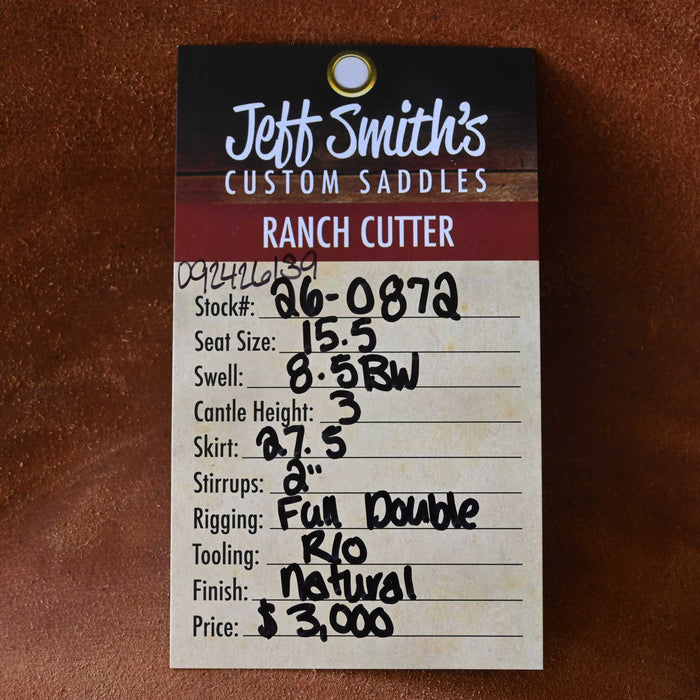 Jeff Smith's
CUSTOM SADDLES
RANCH CUTTER
092426139
Stock#: 26-0872
Seat Size: 15.5
Swell: 8.5BW
Cantle Height: 3
Skirt: 27.5
Stirrups: 2"
Rigging: Full Double
Tooling: R/O
Finish: Natural
Price: $3,000